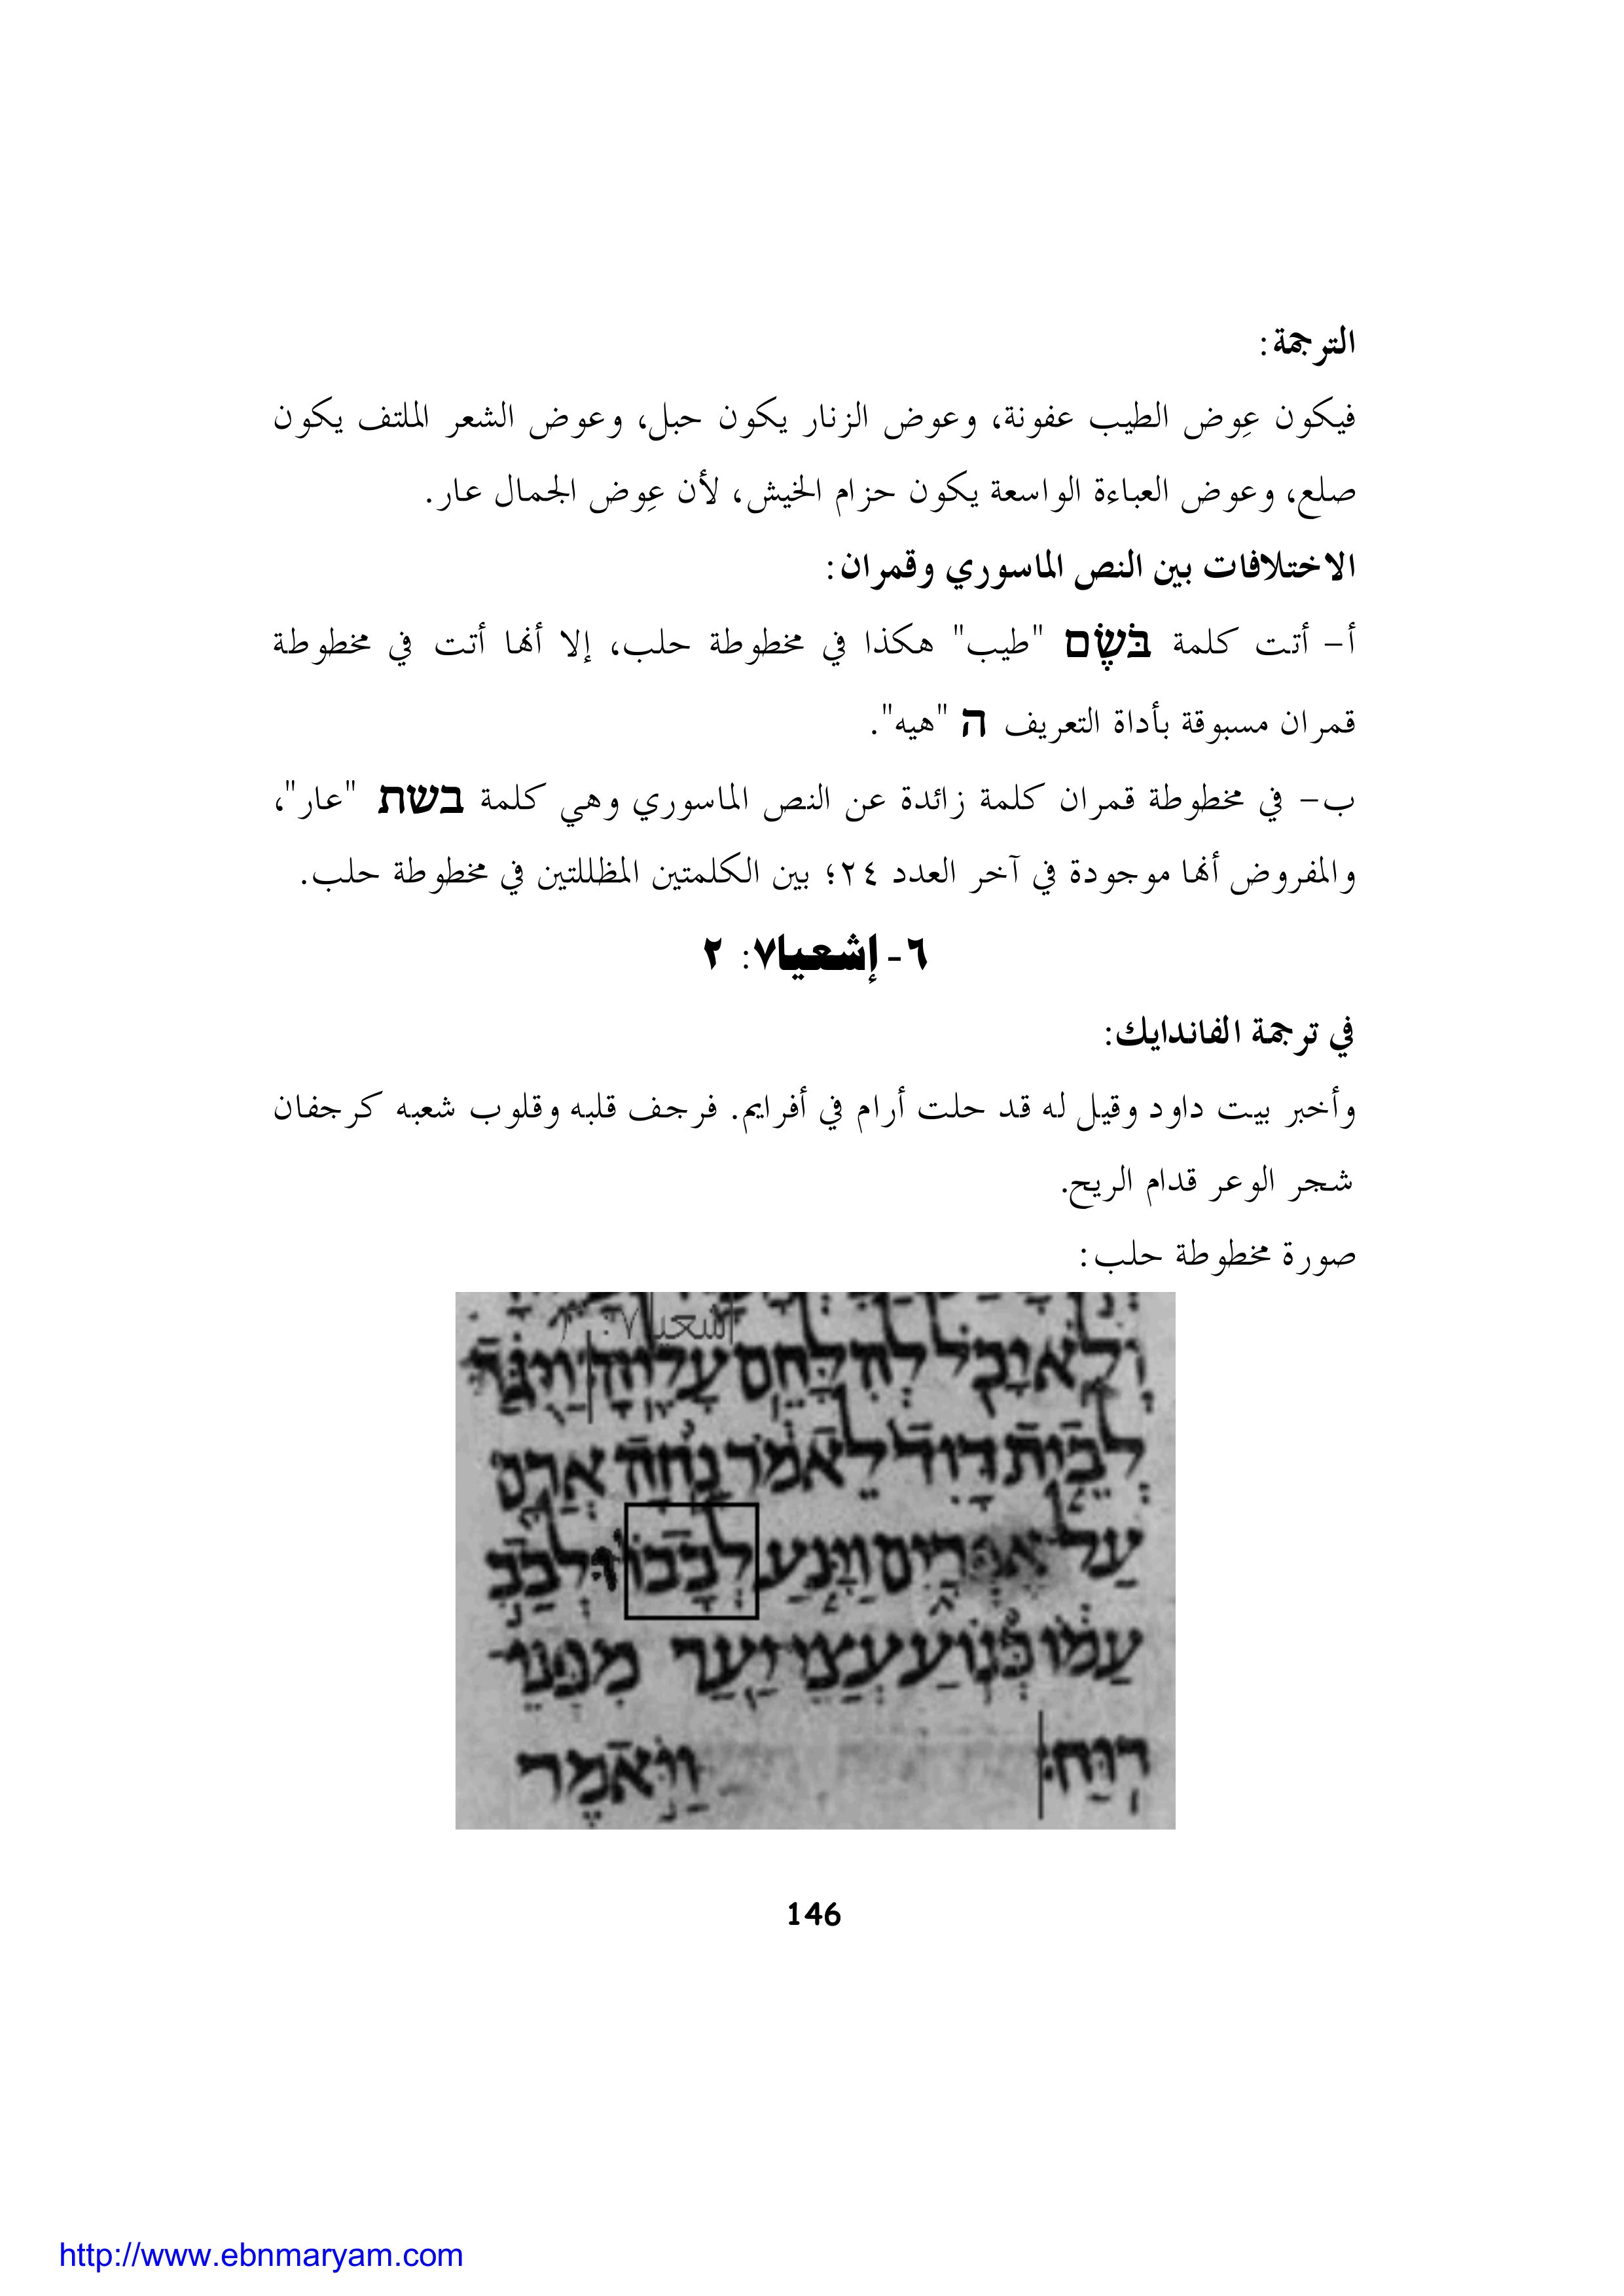 الترجمة:
فيكون عِوض الطيب عفونة، وعوض الزنار يكون حبل، وعوض الشعر الملتف يكون
صلع، وعوض العباءة الواسعة يكون حزام الخيش، لأن عِوض الجمال عار.
الاختلافات بين النص الماسوري وقمران:
أ– أتت كلمة בֹּשֶׂם "طيب" هكذا في مخطوطة حلب، إلا أنها أتت في مخطوطة
قمران مسبوقة بأداة التعريف ה "هيه".
ب– في مخطوطة قمران كلمة زائدة عن النص الماسوري وهي كلمة בשת "عار"،
والمفروض أنها موجودة في آخر العدد ٢٤؛ بين الكلمتين المظللتين في مخطوطة حلب.
٦- إشعيا٧: ٢
في ترجمة الفاندايك:
وأخبر بيت داود وقيل له قد حلت أرام في أفرايم. فرجف قلبه وقلوب شعبه كرجفان
شجر الوعر قدام الريح.
صورة مخطوطة حلب:
اشعيا ٧:
וְלֹא יָכֹל לְהִלָּחֵם עָלֶיהָ׃ וַיֻּגַּד
לְבֵית דָּוִד לֵאמֹר נָחָה אֲרָם
עַל אֶפְרָיִם וַיָּנַע לְבָבוֹ וּלְבַב
עַמּוֹ כְּנוֹעַ עֲצֵי יַעַר מִפְּנֵי
רוּחַ׃ וַיֹּאמֶר
146
http://www.ebnmaryam.com